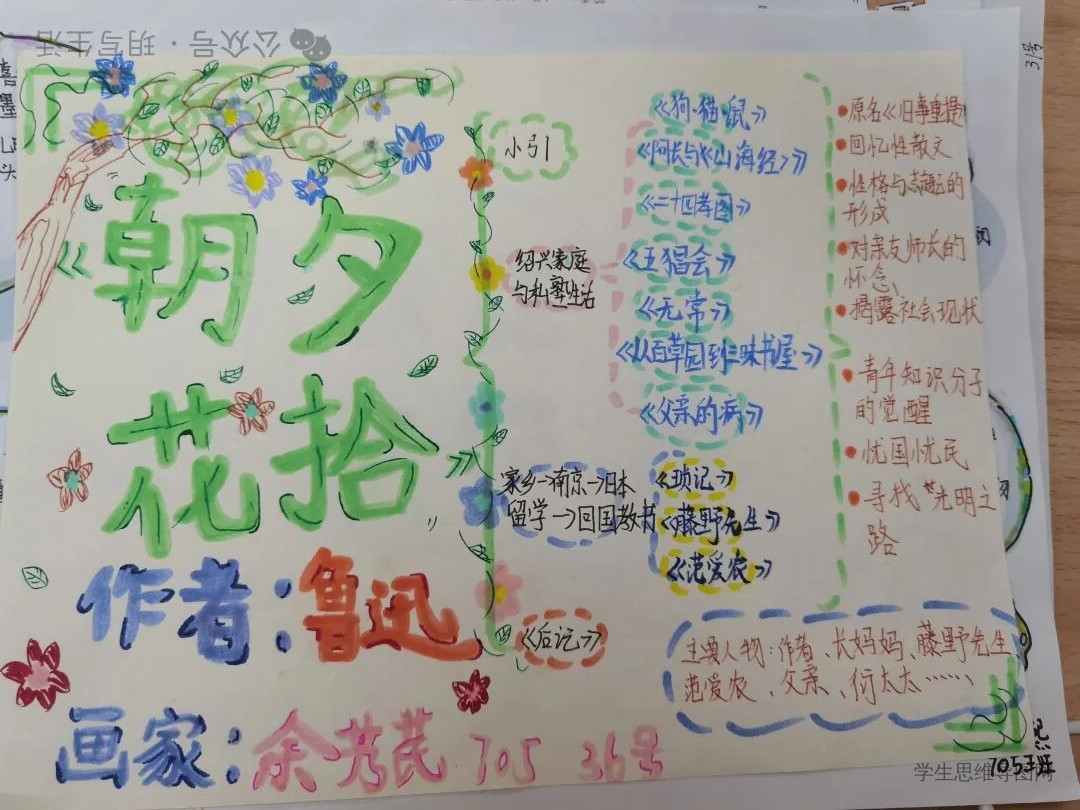 公众号·玥写生活
《朝夕
花拾》
作者：鲁迅
画家：余芳芪 705 36号
小引
绍兴家庭
与私塾生活
《狗·猫·鼠》
《阿长与《山海经》》
《二十四孝图》
《五猖会》
《无常》
《从百草园到三味书屋》
《父亲的病》
家乡→南京→日本
留学→回国教书
《琐记》
《藤野先生》
《范爱农》
《后记》
原名《旧事重提》
回忆性散文
性格与志趣的
形成
对亲友师长的
怀念、
揭露社会现状
青年知识分子
的觉醒
忧国忧民
寻找"光明之
路
主要人物：作者、长妈妈、藤野先生
范爱农、父亲、衍太太……、
31号
705班
学生思维导图网